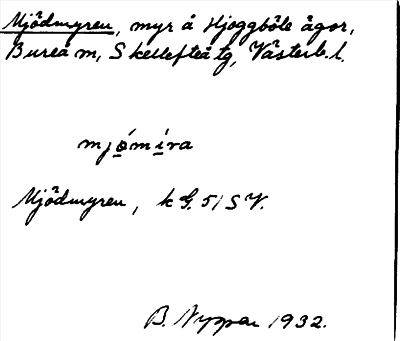 Mjödmyren, myr å Hjoggböle ägor,
Bureå m, Skellefteå tg, Västerb. l.
mjo̲´mi̲´ra
Mjödmyren, k G. 51 SV.
B. Nyppan 1932.